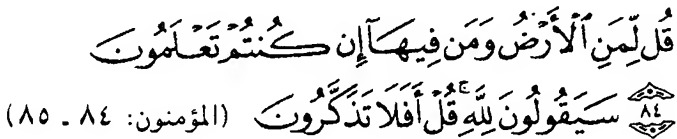 قُل لِّمَنِ ٱلْأَرْضُ وَمَن فِيهَآ إِن كُنتُمْ تَعْلَمُونَ
۝٨٤ سَيَقُولُونَ لِلَّهِ ۚ قُلْ أَفَلَا تَذَكَّرُونَ (المؤمنون: ٨٤ ـ ٨٥)